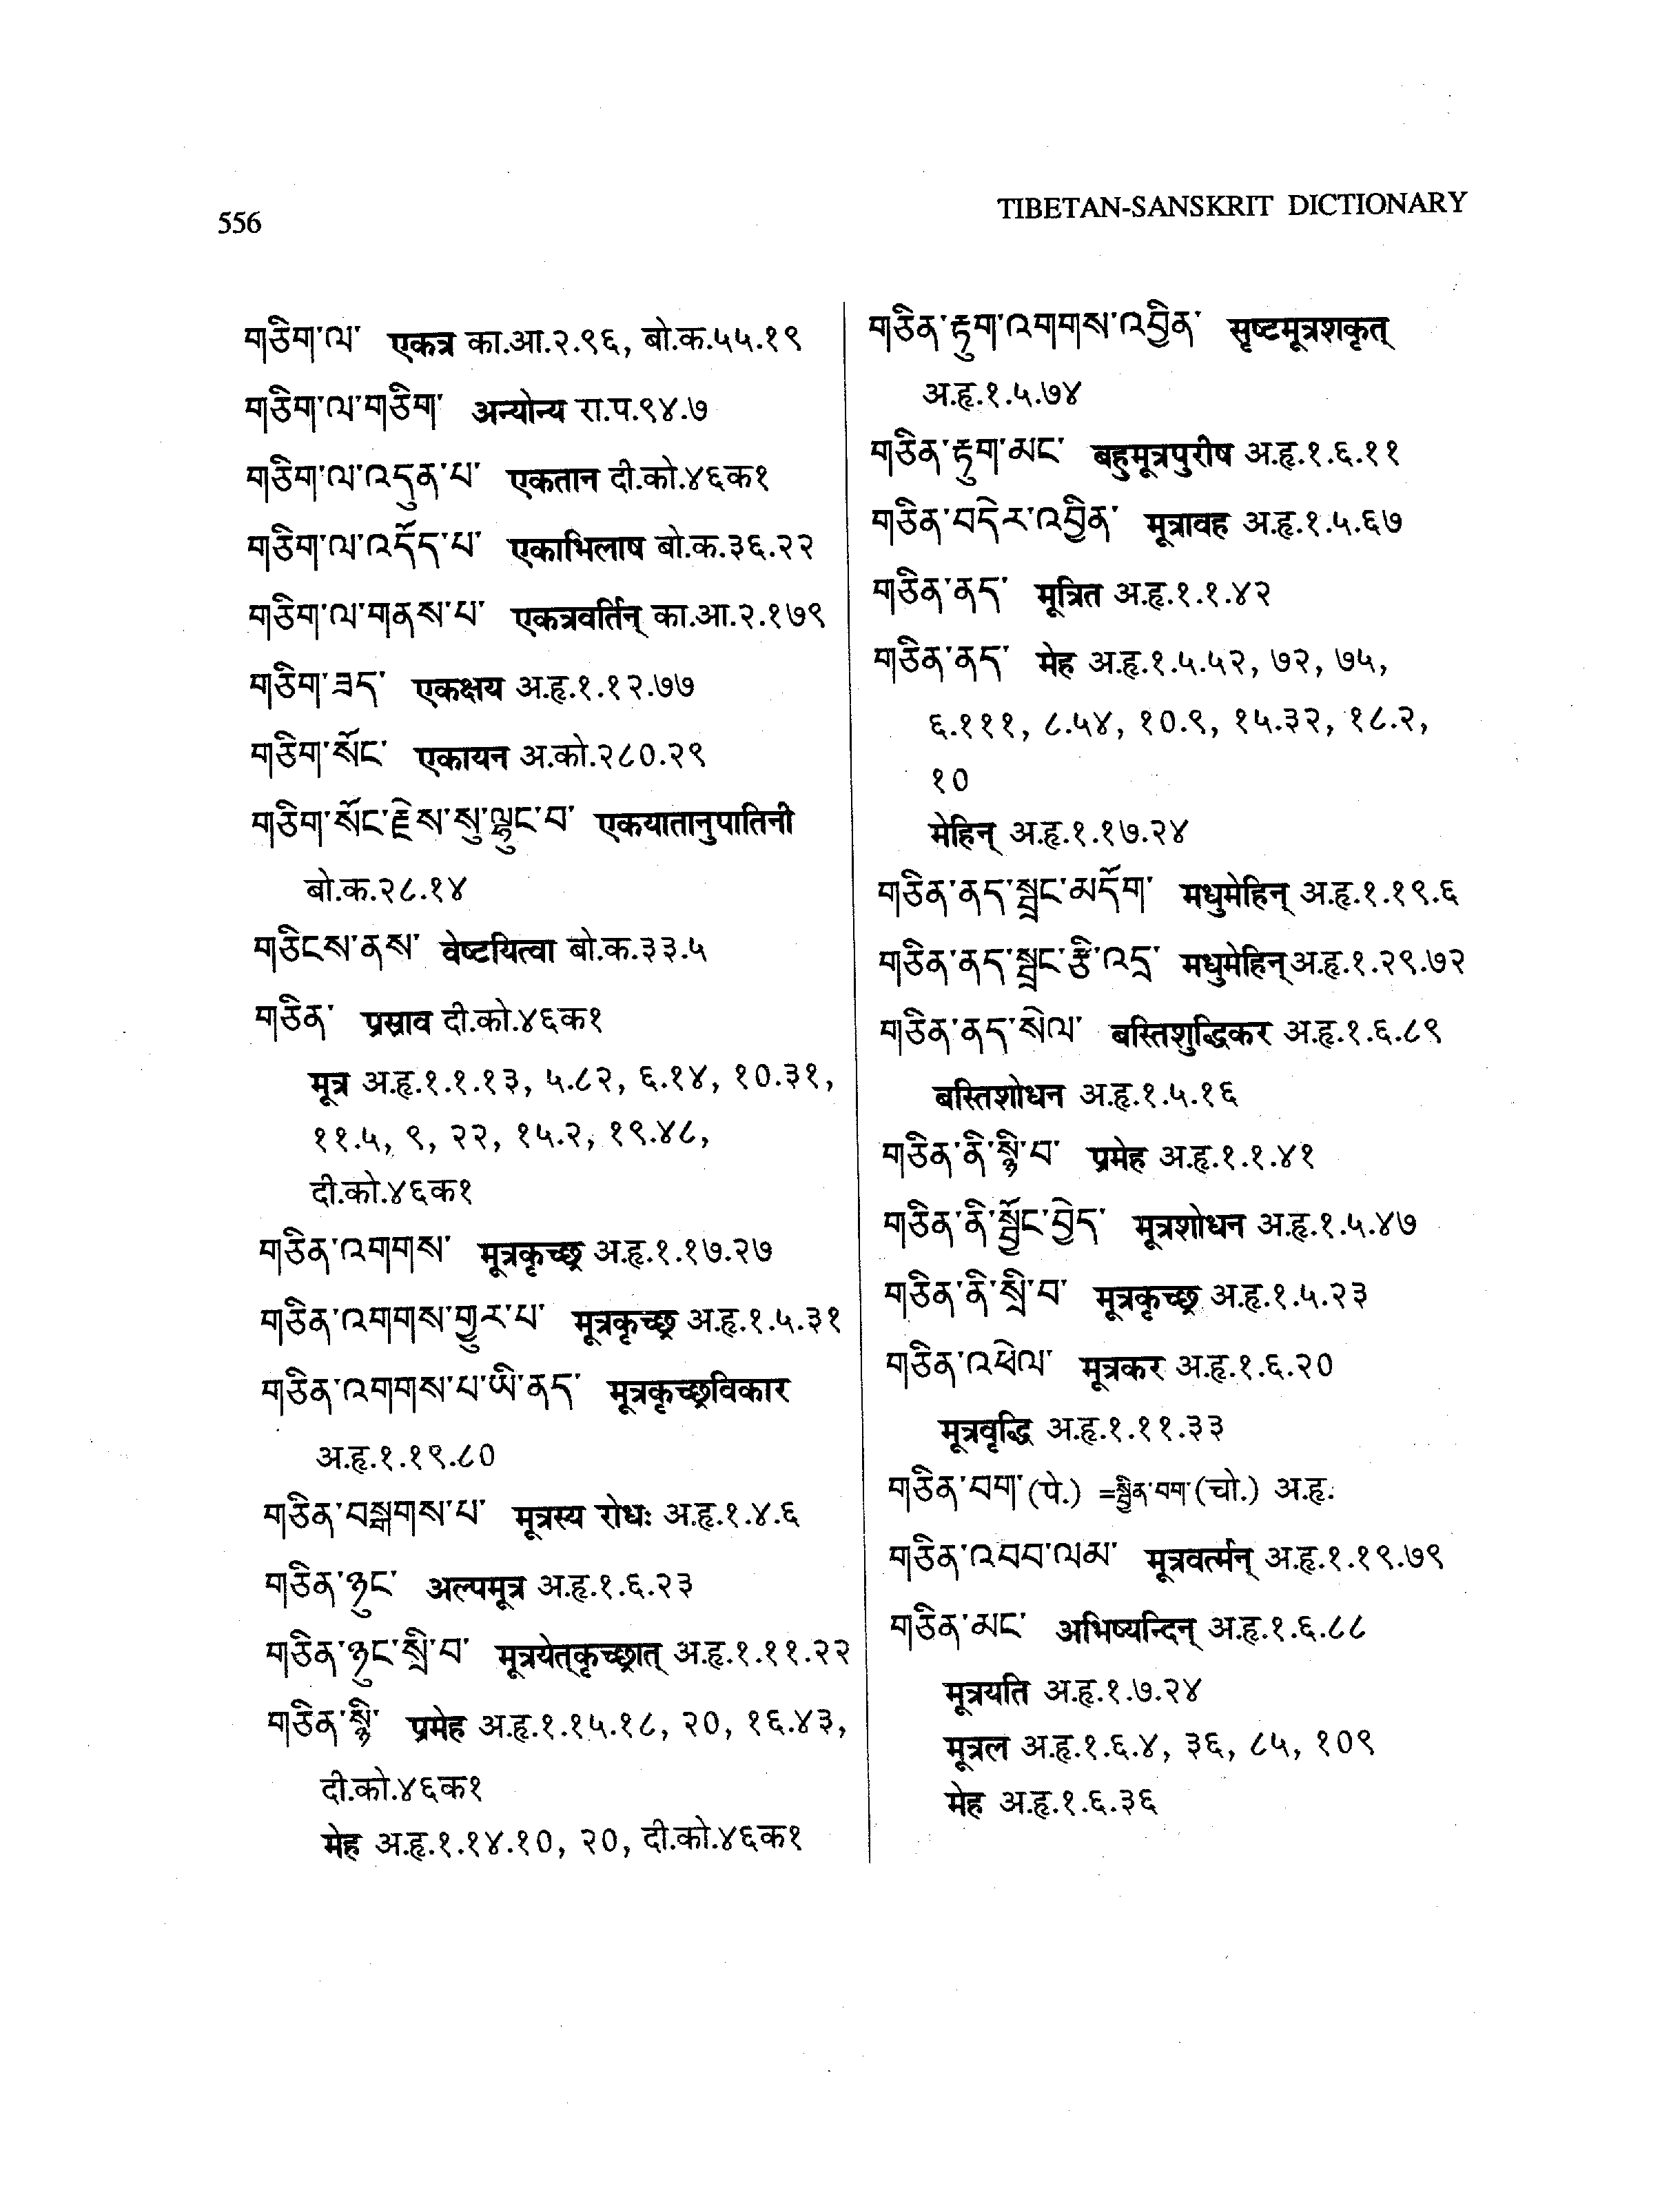 556
TIBETAN-SANSKRIT DICTIONARY
གཅིག་ལ་ एकत्र का.आ.२.९६, बो.क.५५.१९
གཅིག་ལ་གཅིག་ अन्योन्य रा.प.९४.७
གཅིག་ལ་འདུན་པ་ एकतान दी.को.४६क१
གཅིག་ལ་འདོད་པ་ एकाभिलाष बो.क.३६.२२
གཅིག་ལ་གནས་པ་ एकत्रवर्तिन् का.आ.२.१७९
གཅིག་ཟད་ एकक्षय अ.हृ.१.१२.७७
གཅིག་སོང་ एकायन अ.को.२८०.२९
གཅིག་སོང་རྗེས་སུ་ལྷུང་བ་ एकयातानुपातिनी
बो.क.२८.१४
གཅིངས་ནས་ वेष्टयित्वा बो.क.३३.५
གཅིན་ प्रस्राव दी.को.४६क१
मूत्र अ.हृ.१.१.१३, ५.८२, ६.१४, १०.३१,
११.५, ९, २२, १५.२, १९.४८,
दी.को.४६क१
གཅིན་འགགས་ मूत्रकृच्छ्र अ.हृ.१.१७.२७
གཅིན་འགགས་གྱུར་པ་ मूत्रकृच्छ्र अ.हृ.१.५.३१
གཅིན་འགགས་པ་ཡི་ནད་ मूत्रकृच्छ्रविकार
अ.हृ.१.१९.८०
གཅིན་བསྒགས་པ་ मूत्रस्य रोधः अ.हृ.१.४.६
གཅིན་ཉུང་ अल्पमूत्र अ.हृ.१.६.२३
གཅིན་ཉུང་སྲི་བ་ मूत्रयेत्कृच्छ्रात् अ.हृ.१.११.२२
གཅིན་སྙི་ प्रमेह अ.हृ.१.१५.१८, २०, १६.४३,
दी.को.४६क१
मेह अ.हृ.१.१४.१०, २०, दी.को.४६क१
གཅིན་རྟུག་འགགས་འབྱིན་ सृष्टमूत्रशकृत्
अ.हृ.१.५.७४
གཅིན་རྟུག་མང་ बहुमूत्रपुरीष अ.हृ.१.६.११
གཅིན་བདེར་འབྱིན་ मूत्रावह अ.हृ.१.५.६७
གཅིན་ནད་ मूत्रित अ.हृ.१.१.४२
གཅིན་ནད་ मेह अ.हृ.१.५.५२, ७२, ७५,
६.१११, ८.५४, १०.९, १५.३२, १८.२,
१०
मेहिन् अ.हृ.१.१७.२४
གཅིན་ནད་སྦྲང་མདོག་ मधुमेहिन् अ.हृ.१.१९.६
གཅིན་ནད་སྦྲང་རྩི་འདྲ་ मधुमेहिन् अ.हृ.१.२९.७२
གཅིན་ནད་སེལ་ बस्तिशुद्धिकर अ.हृ.१.६.८९
बस्तिशोधन अ.हृ.१.५.१६
གཅིན་ནི་སྙི་བ་ प्रमेह अ.हृ.१.१.४१
གཅིན་ནི་སྦྱོང་བྱེད་ मूत्रशोधन अ.हृ.१.५.४७
གཅིན་ནི་སྲི་བ་ मूत्रकृच्छ्र अ.हृ.१.५.२३
གཅིན་འཕེལ་ मूत्रकर अ.हृ.१.६.२०
मूत्रवृद्धि अ.हृ.१.११.३३
གཅིན་བག་ (पे.) =སྦྱིན་བག་ (चो.) अ.हृ.
གཅིན་འབབ་ལམ་ मूत्रवर्त्मन् अ.हृ.१.१९.७९
གཅིན་མང་ अभिष्यन्दिन् अ.हृ.१.६.८८
मूत्रयति अ.हृ.१.७.२४
मूत्रल अ.हृ.१.६.४, ३६, ८५, १०९
मेह अ.हृ.१.६.३६